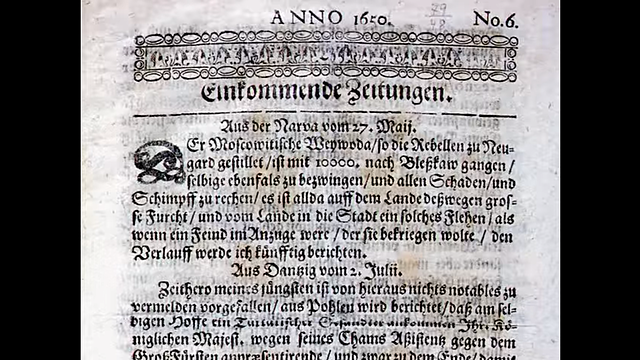 ANNO 1650. No. 6.
Einkommende Zeitungen.
Aus der Narva vom 27. Maij.
DEr Moscowitische Weywoda/ so die Rebellen zu Neu-
gard gestillet/ ist mit 10000. nach Bleßkaw gangen/
selbige ebenfals zu bezwingen/ und allen Schaden/ und
Schimpff zu rechen/ es ist allda auff dem Lande deßwegen gros-
se Furcht/ und vom Lande in die Stadt ein solches Flehen/ als
wenn ein Feind im Anzuge were/ der sie bekriegen wolte/ den
Verlauff werde ich künfftig berichten.
Aus Dantzig vom 2. Julii.
Zeithero meines jüngsten ist von hieraus nichts notables zu
vermelden vorgefallen/ aus Pohlen wird berichtet/ daß am sel-
bigen Hoffe ein Tartarischer Gesandter ankommen Ihr. Kö-
niglichen Majest. wegen seines Chams Assistentz gegen dem
GroßFürsten appræsentirende/ und zwar zu dem Ende/